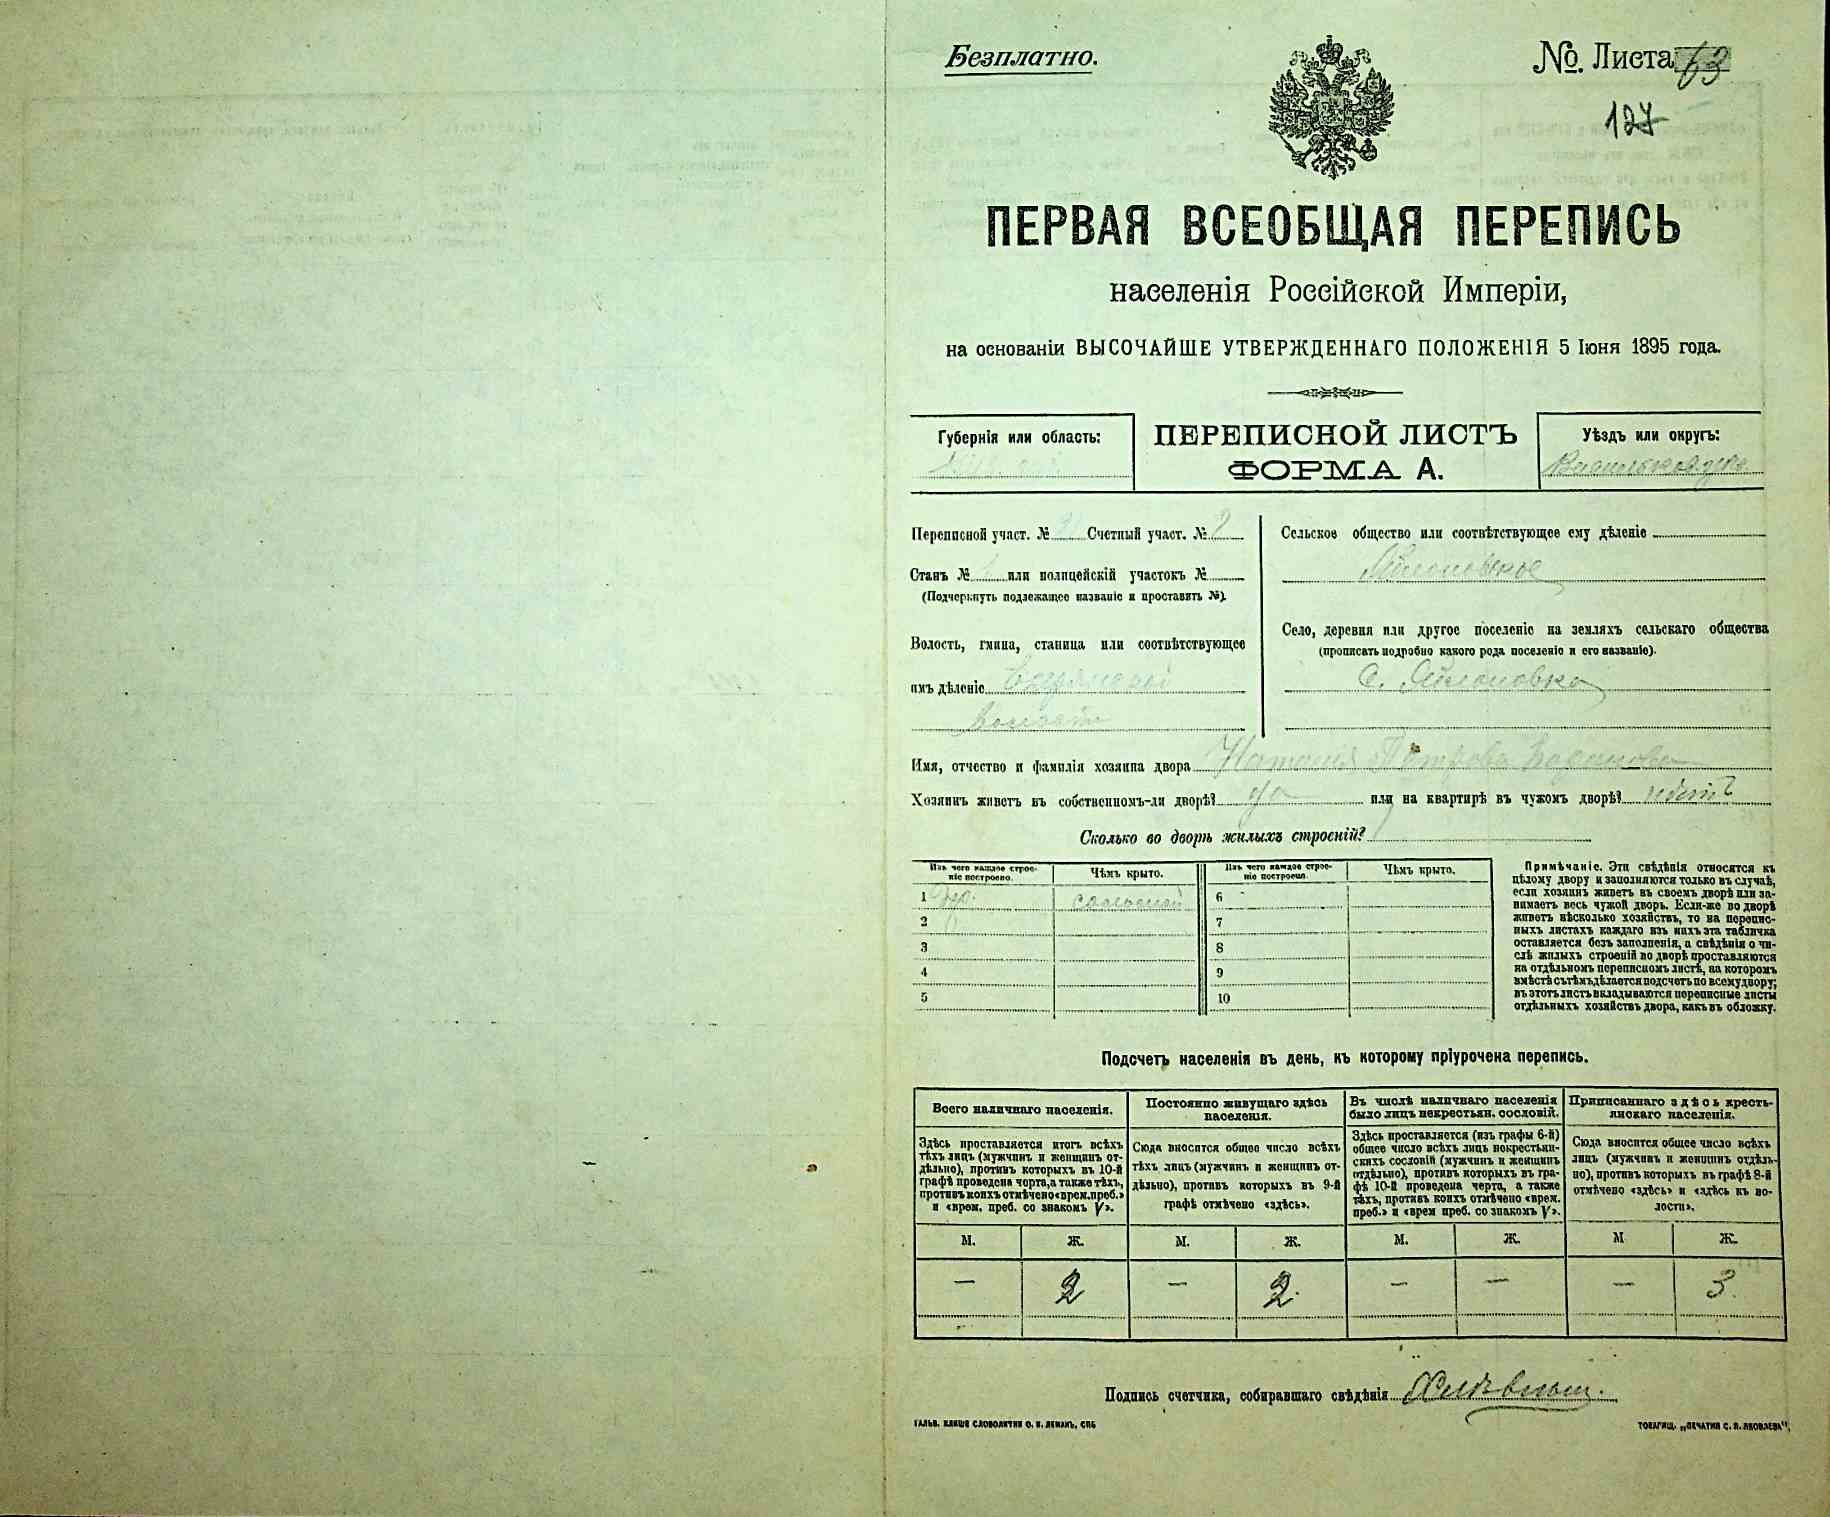 Безплатно.
№. Листа 63
127
ПЕРВАЯ ВСЕОБЩАЯ ПЕРЕПИСЬ
населенія Россійской Имперіи,
на основаніи ВЫСОЧАЙШЕ УТВЕРЖДЕННАГО ПОЛОЖЕНІЯ 5 Іюня 1895 года.
Губернія или область:
ПЕРЕПИСНОЙ ЛИСТЪ
ФОРМА А.
Уѣздъ или округъ:
Переписной участ. № Счетный участ. № 2
Станъ № или полицейскій участокъ №
(Подчеркнуть подлежащее названіе и проставить №).
Волость, гмина, станица или соотвѣтствующее
имъ дѣленіе
волости
Сельское общество или соотвѣтствующее ему дѣленіе
Село, деревня или другое поселеніе на земляхъ сельскаго общества
(прописать подробно какого рода поселеніе и его названіе).
с.
Имя, отчество и фамилія хозяина двора Петрова
Хозяинъ живетъ въ собственномъ-ли дворѣ? да или на квартирѣ въ чужомъ дворѣ?
Сколько во дворѣ жилыхъ строеній?
Изъ чего каждое строе-
ніе построено.
Чѣмъ крыто.
Изъ чего каждое строе-
ніе построено.
Чѣмъ крыто.
1 дер. соломой 6
2 7
3 8
4 9
5 10
Примѣчаніе. Эти свѣдѣнія относятся къ
цѣлому двору и заполняются только въ случаѣ,
если хозяинъ живетъ въ своемъ дворѣ или за-
нимаетъ весь чужой дворъ. Если-же во дворѣ
живетъ нѣсколько хозяйствъ, то на перепис-
ныхъ листахъ каждаго изъ нихъ эта табличка
оставляется безъ заполненія, а свѣдѣнія о чи-
слѣ жилыхъ строеній во дворѣ проставляются
на отдѣльномъ переписномъ листѣ, на которомъ
вмѣстѣ съ тѣмъ дѣлается подсчетъ по всему двору;
въ этотъ листъ вкладываются переписные листы
отдѣльныхъ хозяйствъ двора, какъ въ обложку.
Подсчетъ населенія въ день, къ которому пріурочена перепись.
Всего наличнаго населенія.
Здѣсь проставляется итогъ всѣхъ
тѣхъ лицъ (мужчинъ и женщинъ от-
дѣльно), противъ которыхъ въ 10-й
графѣ проведена черта, а также тѣхъ,
противъ коихъ отмѣчено «врем. преб.»
и «врем. преб. со знакомъ V».
Постоянно живущаго здѣсь
населенія.
Сюда вносится общее число всѣхъ
тѣхъ лицъ (мужчинъ и женщинъ от-
дѣльно), противъ которыхъ въ 9-й
графѣ отмѣчено «здѣсь».
Въ числѣ наличнаго населенія
было лицъ некрестьян. сословій.
Здѣсь проставляется (изъ графы 6-й)
общее число всѣхъ лицъ некрестьян-
скихъ сословій (мужчинъ и женщинъ
отдѣльно), противъ которыхъ въ гра-
фѣ 10-й проведена черта, а также
тѣхъ, противъ коихъ отмѣчено «врем.
преб.» и «врем преб. со знакомъ V».
Приписаннаго здѣсь кресть-
янскаго населенія.
Сюда вносится общее число всѣхъ
лицъ (мужчинъ и женщинъ отдѣль-
но), противъ которыхъ въ графѣ 8-й
отмѣчено «здѣсь» и «здѣсь въ во-
лости».
М. Ж. М. Ж. М. Ж. М Ж.
— 2 — 2. — — — 3.
Подпись счетчика, собиравшаго свѣдѣнія
ГАЛЬВ. КЛИШЕ СЛОВОЛИТНИ О. И. ЛЕМАНЪ, СПБ
ТОВАРИЩ. „ПЕЧАТНЯ С. П. ЯКОВЛЕВА“.